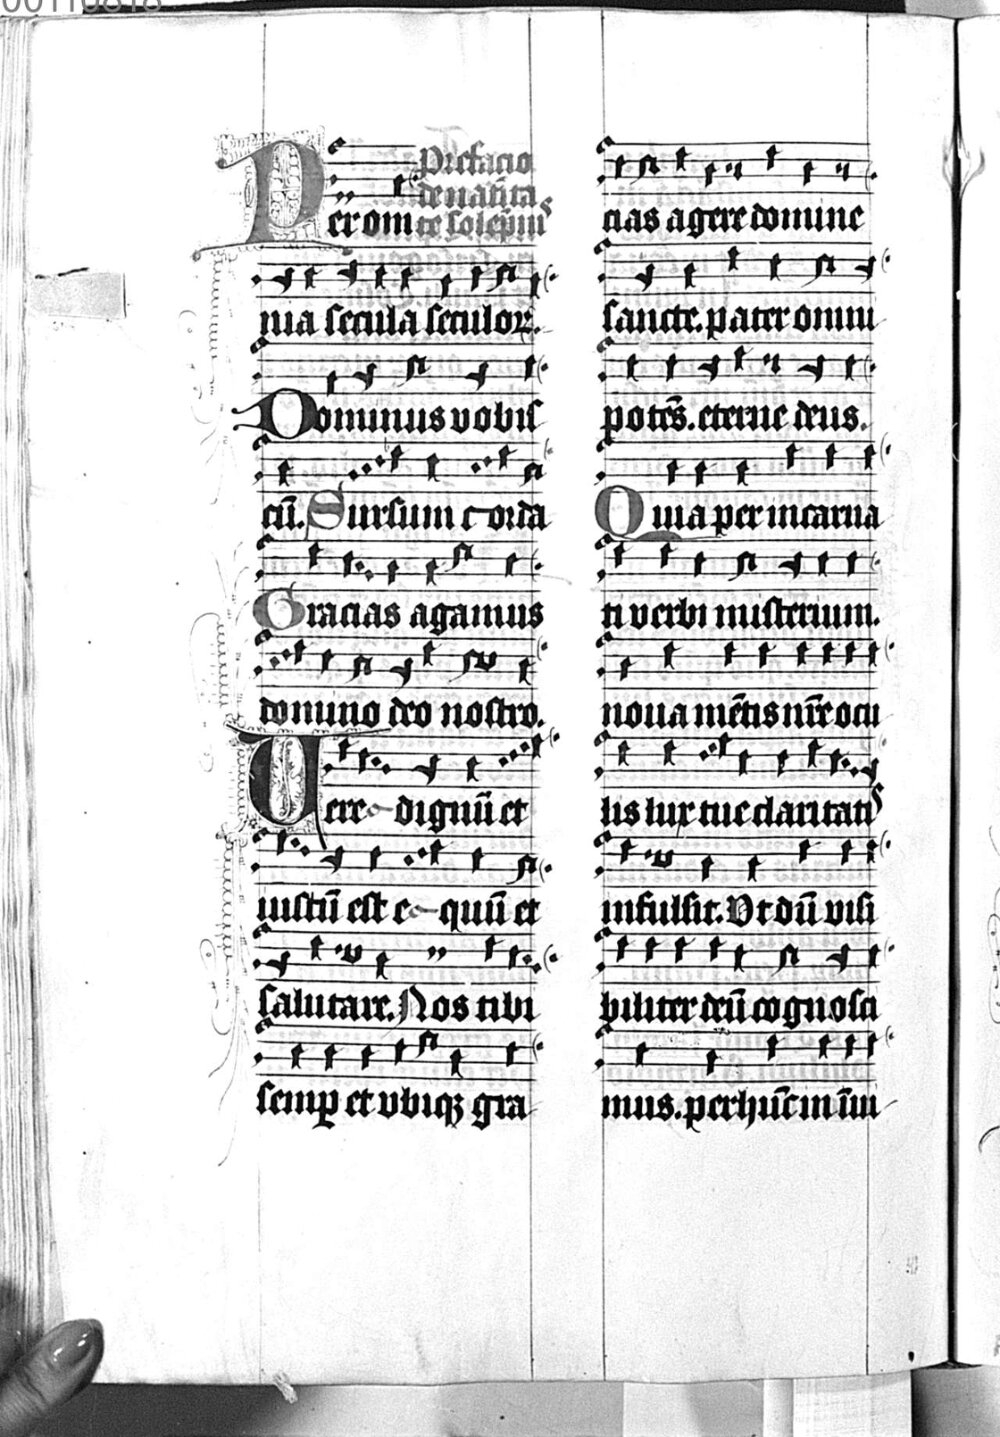 00110818
Prefacio
de natiuita
Per om te solēpnis
nia secula seculoꝝ.
Dominus vobis
cū. Sursum corda
Gracias agamus
domino deo nostro.
Vere dignū et
iustū est equū et
salutare. Nos tibi
semꝑ et vbiqꝫ gra
cias agere domine
sancte. pater omni
potēs. eterne deus.
Quia per incarna
ti verbi misterium.
noua mētis nr̄e ocu
lis lux tue claritatis
infulsit. Vt dū visi
biliter deū cognosci
mus. per hūc in īui